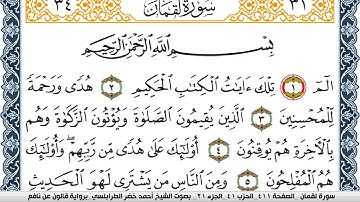 ٣٤ سُورَةُ لُقْمَانَ ٣١
بِسْمِ اللَّهِ الرَّحْمَٰنِ الرَّحِيمِ
أَلَٓمِّٓ ١ تِلْكَ ءَايَٰتُ الْكِتَٰبِ الْحَكِيمِ ٢ هُدًى وَرَحْمَةً
لِّلْمُحْسِنِينَ ٣ الَّذِينَ يُقِيمُونَ الصَّلَوٰةَ وَيُؤْتُونَ الزَّكَوٰةَ وَهُم
بِالْأَخِرَةِ هُمْ يُوقِنُونَ ٤ أُوْلَٰٓئِكَ عَلَىٰ هُدًى مِّن رَّبِّهِمْ وَأُوْلَٰٓئِكَ
هُمُ الْمُفْلِحُونَ ٥ وَمِنَ النَّاسِ مَنْ يَّشْتَرِى لَهْوَ الْحَدِيثِ
سورة لقمان الصفحة ٤١١ الحزب ٤١ الجزء ٢١ بصوت الشيخ أحمد خضر الطرابلسي برواية قالون عن نافع